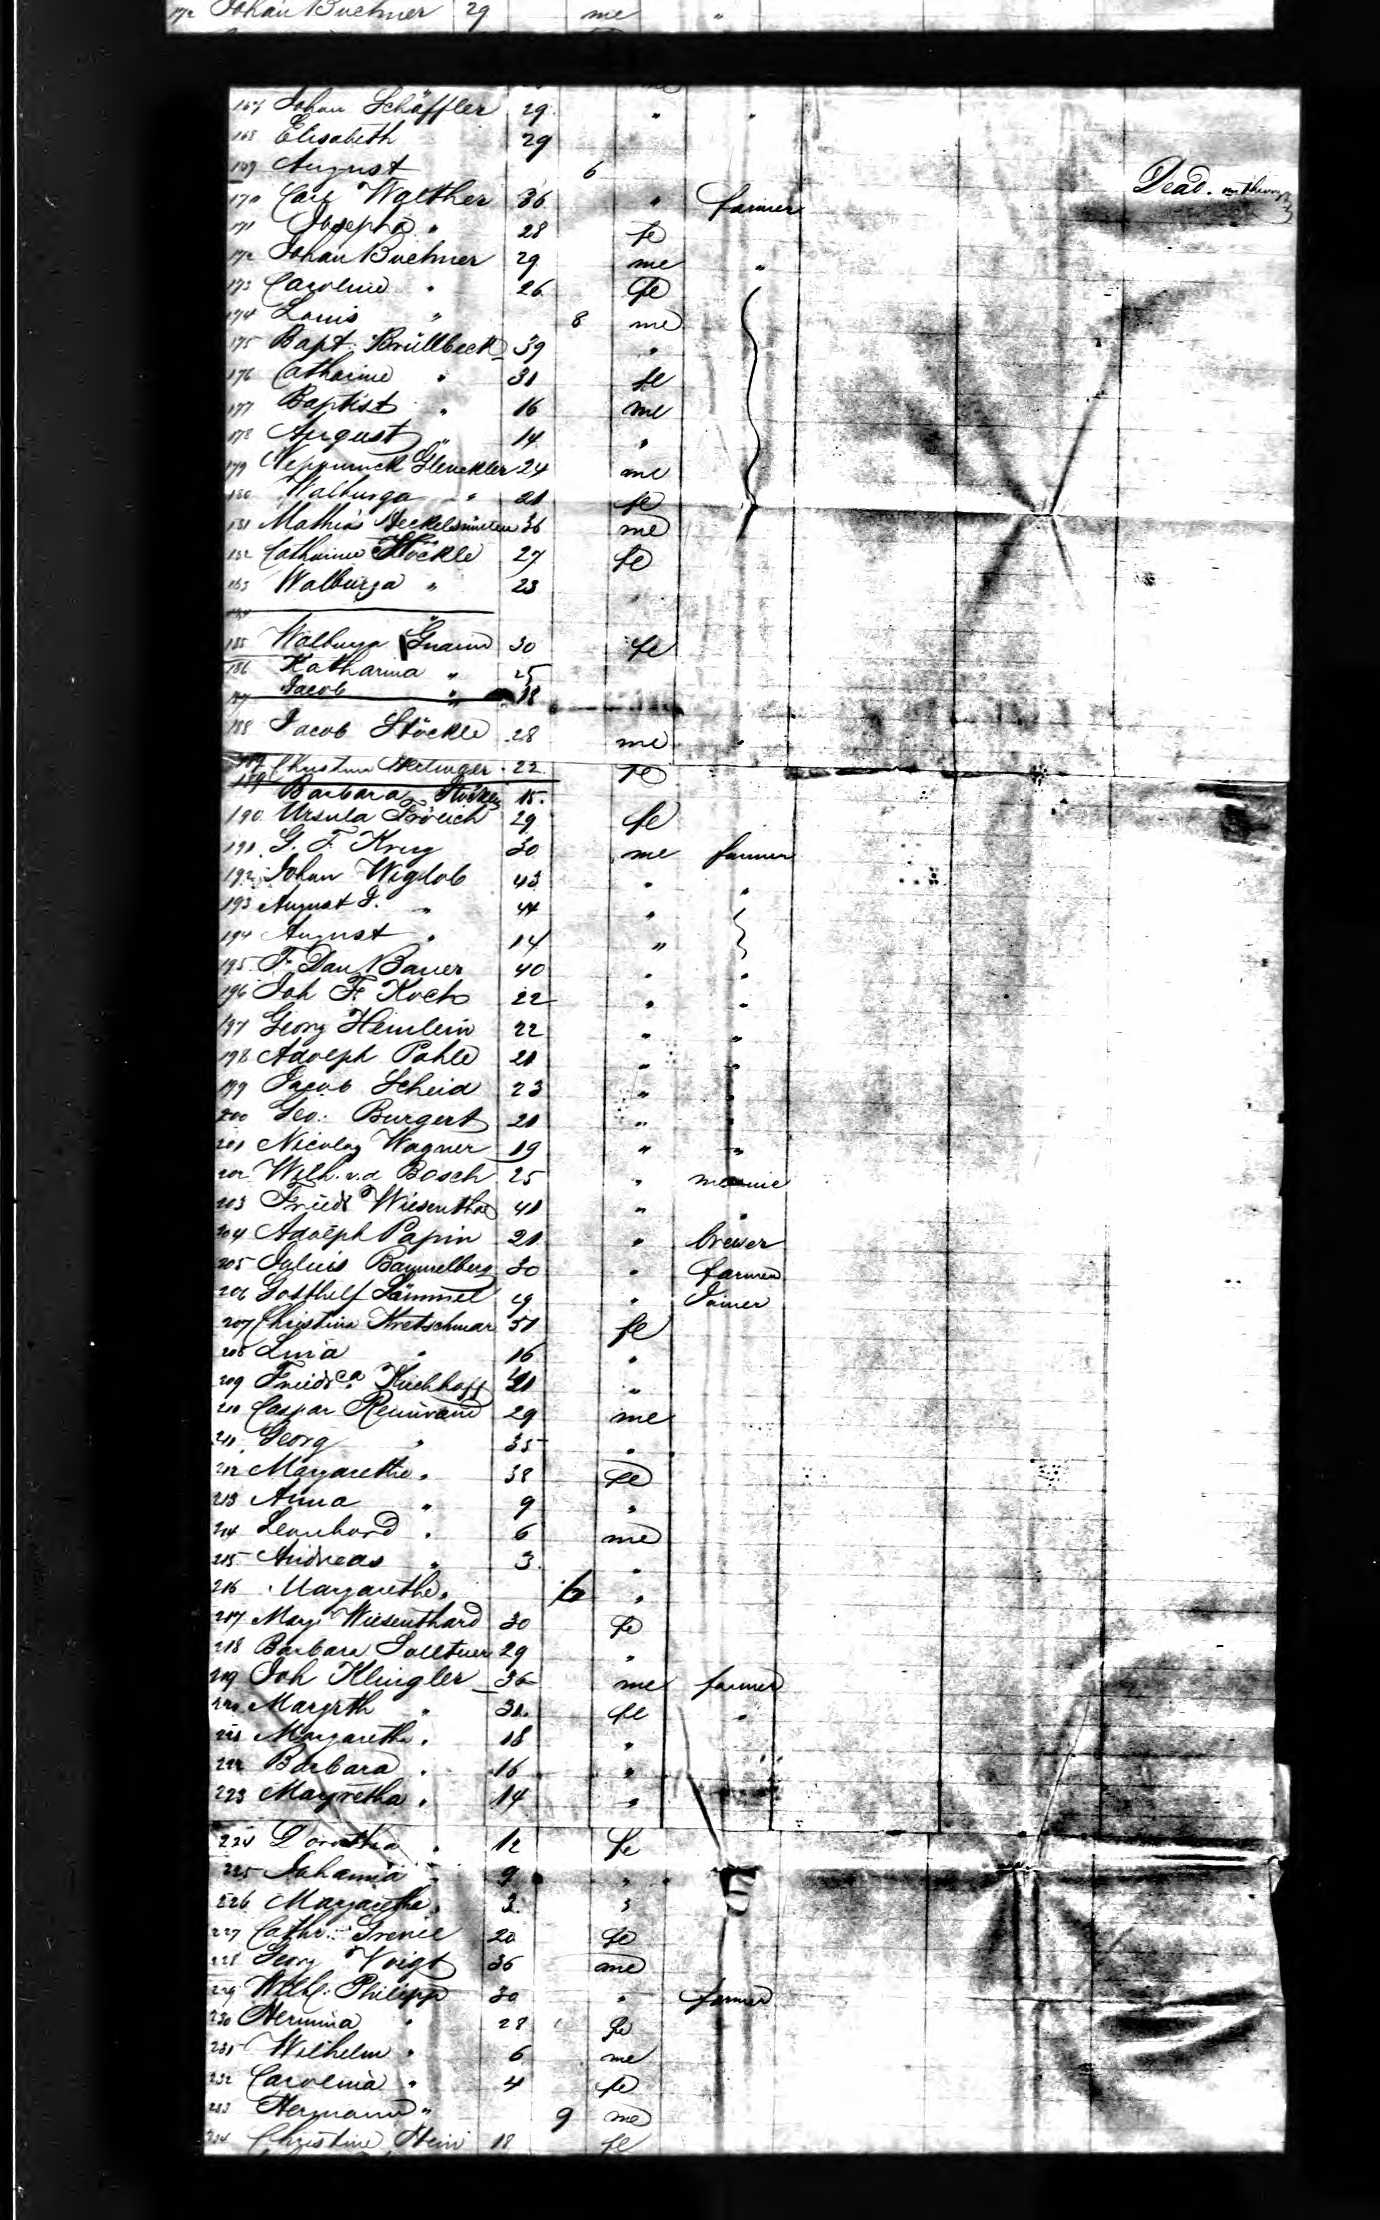 172 Johan Buehner 29 me "
167 Johan Schäffler 29 " "
168 Elisabeth 29
169 August 6 Dead.
170 Carl Walther 36 " farmer
171 Josepha " 28 fe
172 Johan Buehner 29 me "
173 Caroline " 26 fe
174 Louis " 8 me
175 Bapt. Brüllbeck 39 "
176 Catharine " 31 fe
177 Baptist " 16 me
178 August " 14 "
179 Glenckler 24 me
180 Walburga " 21 fe
181 Mathias 36 me
182 Catharine Stöckle 27 fe
183 Walburga " 23
184
185 Walburga Gnann 30 fe
186 Katharina " 25
187 Jacob " 18
188 Jacob Stöckle 28 me "
189 Christina 22 fe
189 Barbara 15.
190 Ursula Frölich 29 fe
191. G. F. Krug 30 me farmer
192 Johan Wiglob 43 " "
193 August J. " 44 "
194 August " 14 "
195 F. Dan Bauer 40 " "
196 Joh F. Koch 22 " "
197 Georg Heinlein 22 " "
198 Adolph Pahle 21 " "
199 Jacob Scheid 23 "
200 Geo: Burgert 21 "
201 Nicolaz Wagner 19 " "
202 Wilh. v. d Bosch 25 "
203 Friedr Wiesenthal 41 " "
204 Adolph Papin 21 " brewer
205 Julius Baumelberg 30 " farmer
206 Gotthelf Lämmel 29 " Joiner
207 Christina Kretschmar 51 fe
208 Lina " 16 "
209 Friedr ca Kirchhoff 21 "
210 Caspar 29 me
211. Georg " 35 "
212 Margarethe " 38 fe
213 Anna " 9 "
214 Leonhard " 6 me
215 Andreas " 3 "
216 Margarethe " "
217 Marg. Wiesenthard 30 fe
218 Barbara 29 "
219 Joh Klingler 36 me farmer
220 Margrth " 31. fe "
221 Margareth " 18 "
222 Barbara " 16 "
223 Margretha " 14 "
224 Dorothea " 12 fe
225 Johanna " 9 "
226 Margaretha " 3 "
227 Cathr. 20 fe
228 Georg Voigt 36 me
229 Wilh. Philipp 30 " farmer
230 Hermina " 28 fe
231 Wilhelm " 6 me
232 Carolina " 4 fe
233 Hermann " 9 me
234 Christine Hein 18 fe